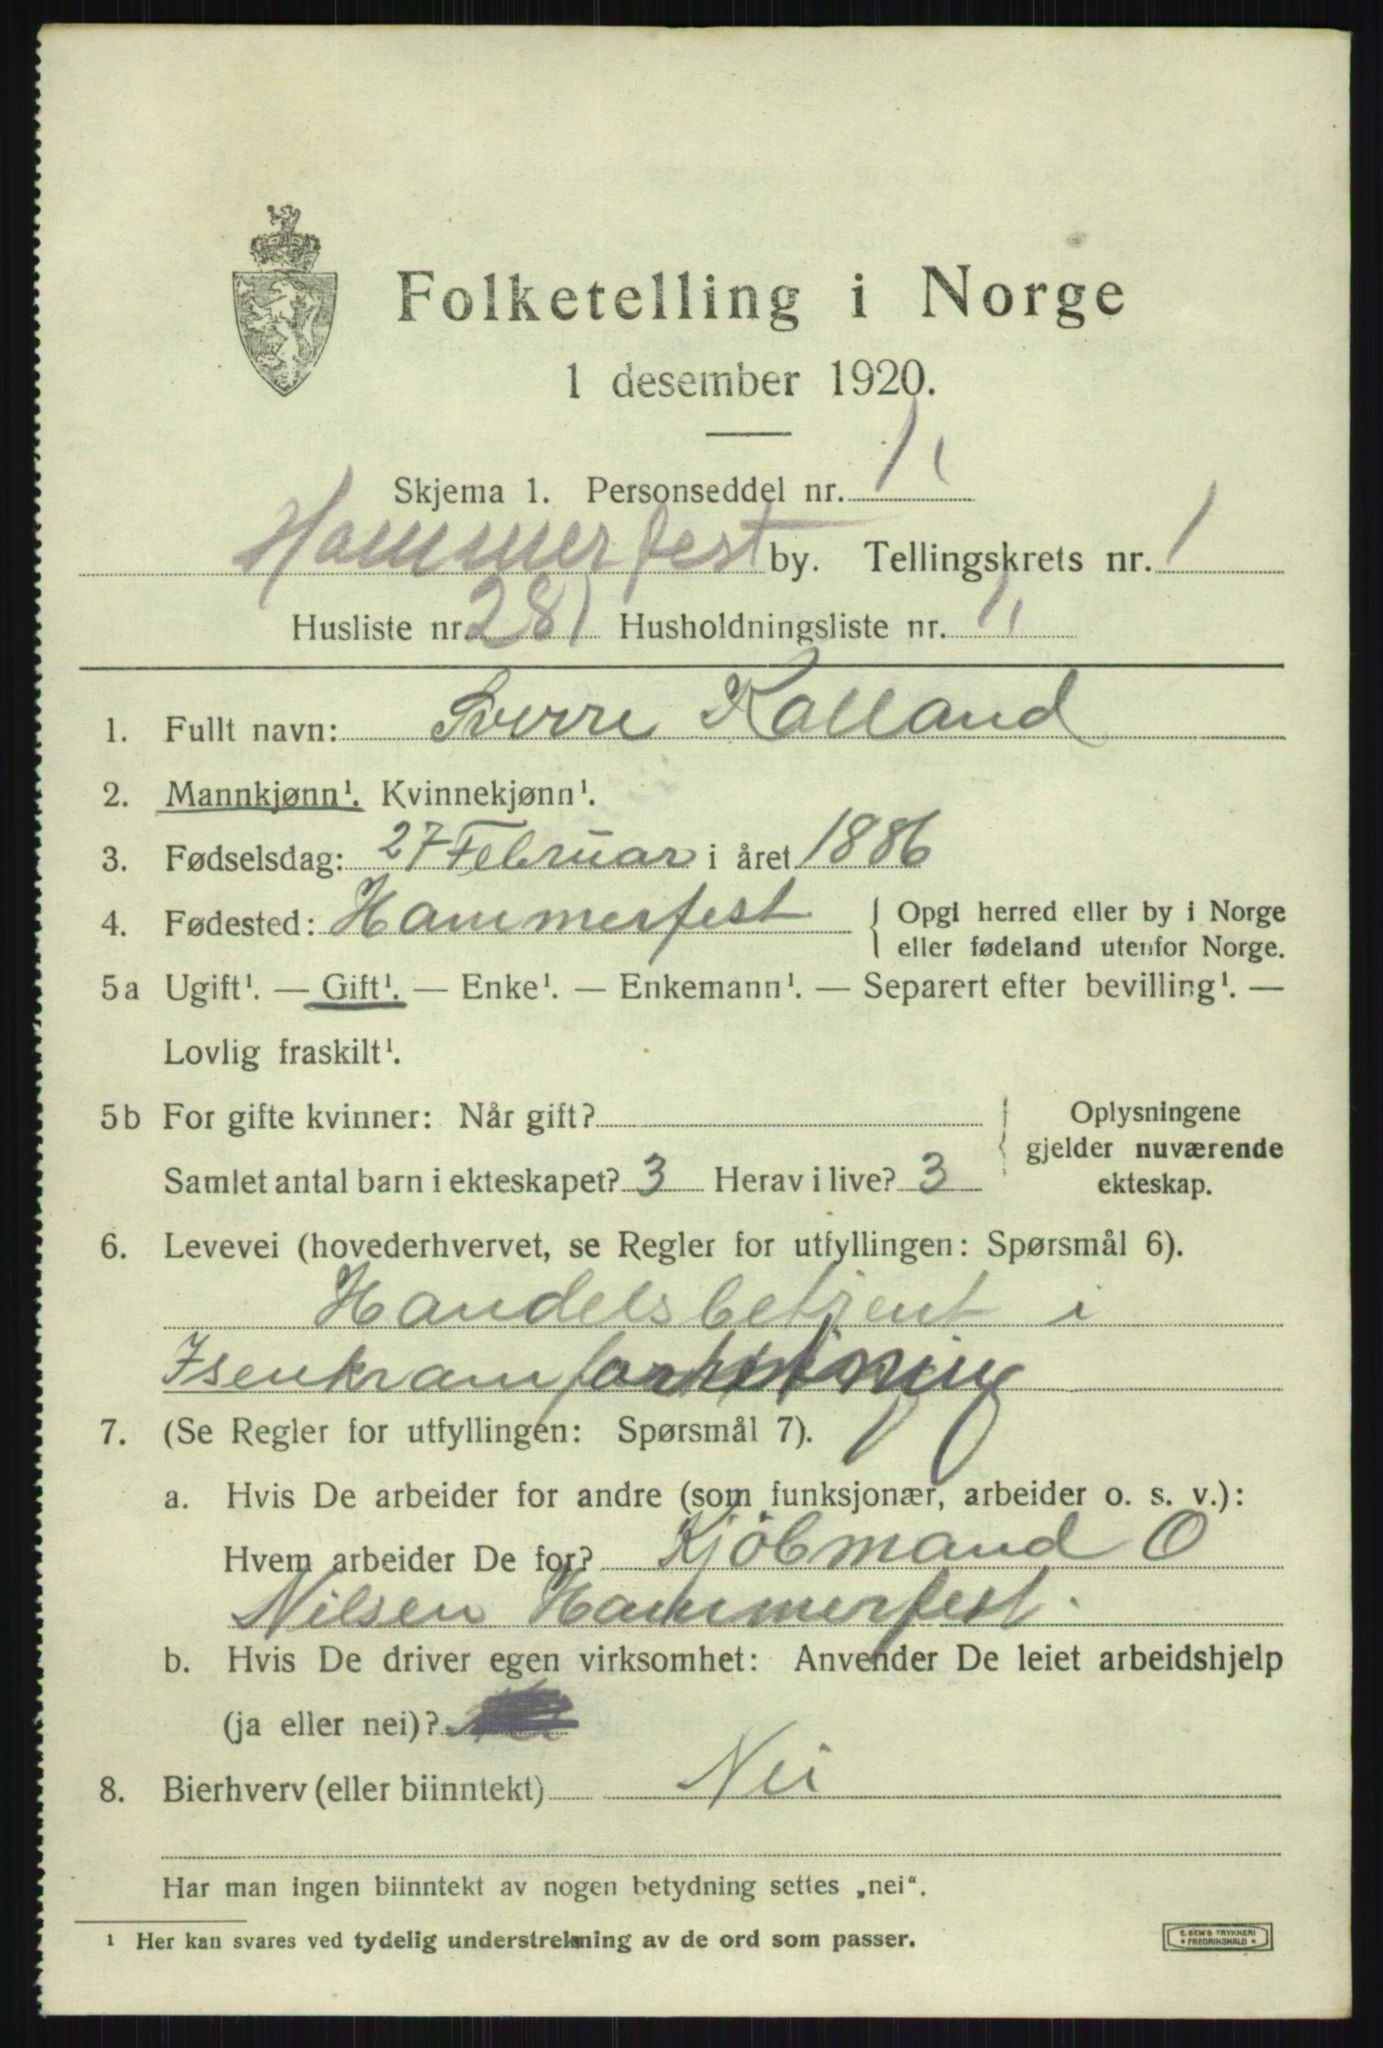 Folketelling i Norge
1 desember 1920.
Skjema 1. Personseddel nr. 1
Hammerfest by. Tellingskrets nr. 1
Husliste nr. 281 Husholdningsliste nr. 1
1. Fullt navn: Sverre Kalland
2. Mannkjønn¹. Kvinnekjønn¹.
3. Fødselsdag: 27 Februar i året 1886
4. Fødested: Hammerfest { Opgi herred eller by i Norge
eller fødeland utenfor Norge.
5a Ugift¹. — Gift¹. — Enke¹. — Enkemann¹. — Separert efter bevilling¹. —
Lovlig fraskilt¹.
5b For gifte kvinner: Når gift? { Oplysningene
gjelder nuværende
Samlet antal barn i ekteskapet? 3 Herav i live? 3 ekteskap.
6. Levevei (hovederhvervet, se Regler for utfyllingen: Spørsmål 6).
Handelsbetjent i
Isenkramforretning
7. (Se Regler for utfyllingen: Spørsmål 7).
a. Hvis De arbeider for andre (som funksjonær, arbeider o. s. v.):
Hvem arbeider De for? Kjöbmand O
Nilsen Hammerfest.
b. Hvis De driver egen virksomhet: Anvender De leiet arbeidshjelp
(ja eller nei)?
8. Bierhverv (eller biinntekt) Nei
Har man ingen biinntekt av nogen betydning settes „nei“.
¹ Her kan svares ved tydelig understrekning av de ord som passer.
E. SEM'S TRYKKERI
FREDRIKSHALD